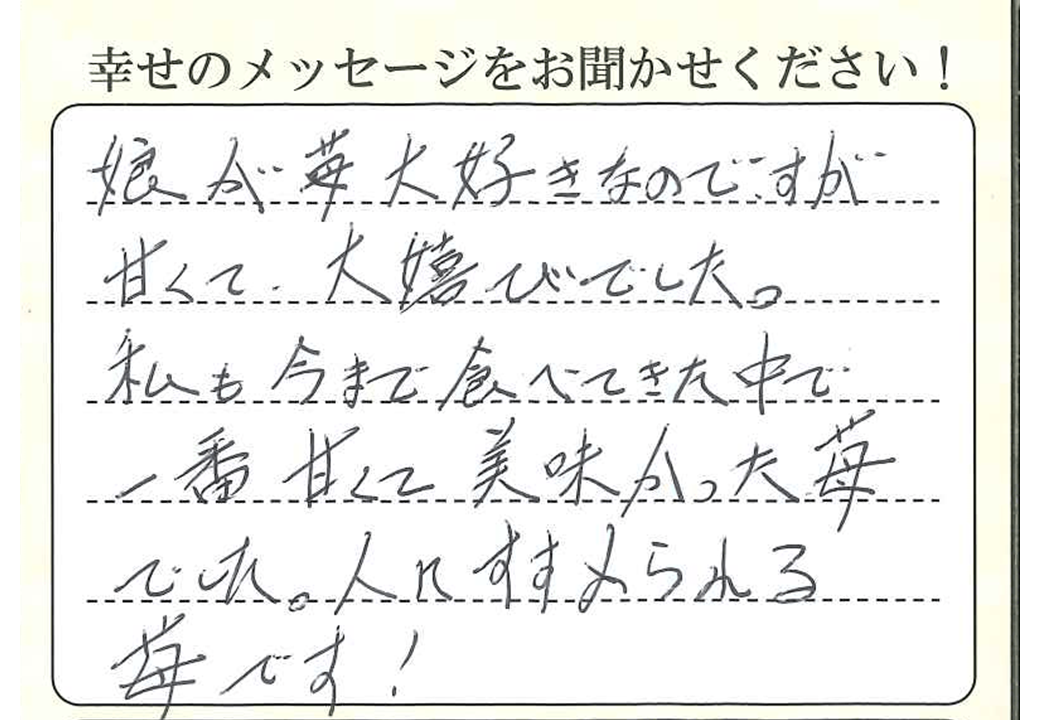 幸せのメッセージをお聞かせください！
娘が苺大好きなのですが
甘くて、大嬉びでした。
私も今まで食べてきた中で
一番甘くて美味かった苺
でした。人にすすめられる
苺です！